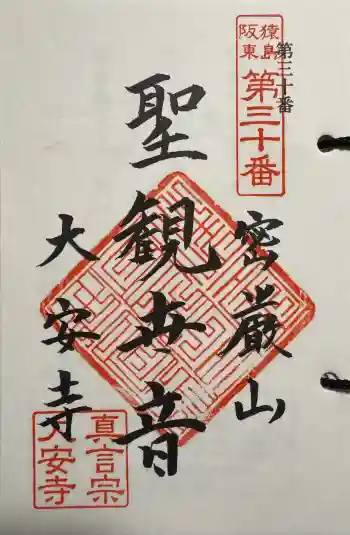 第三十番
猿島
阪東
第三十番
密厳山
聖観世音
大安寺
真言宗
大安寺